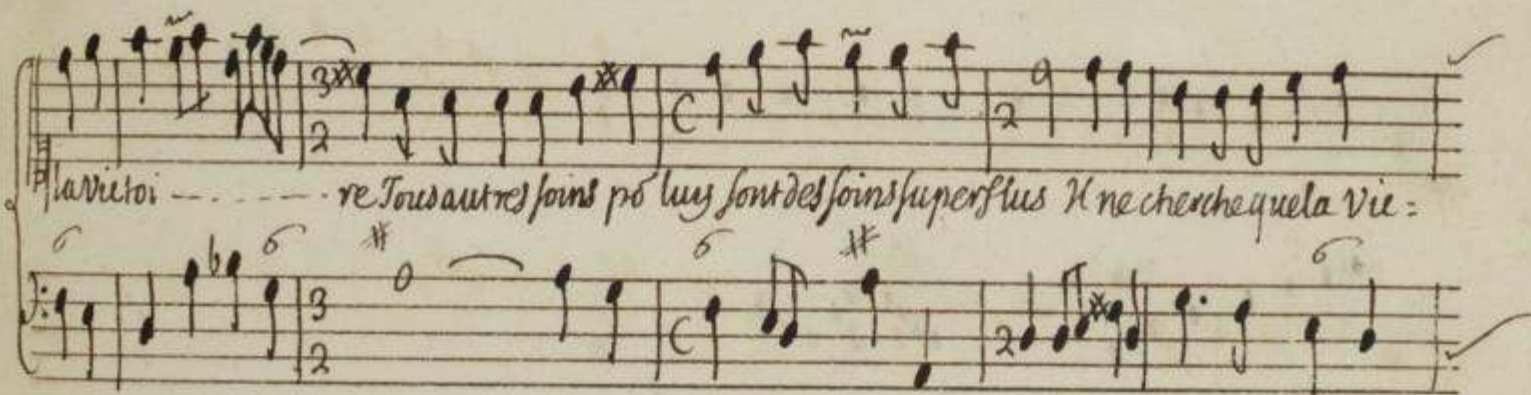 la victoi - - . . - - - - - re Tous autres soins põ luy sont des soins superflus Il ne cherche que la Vic =